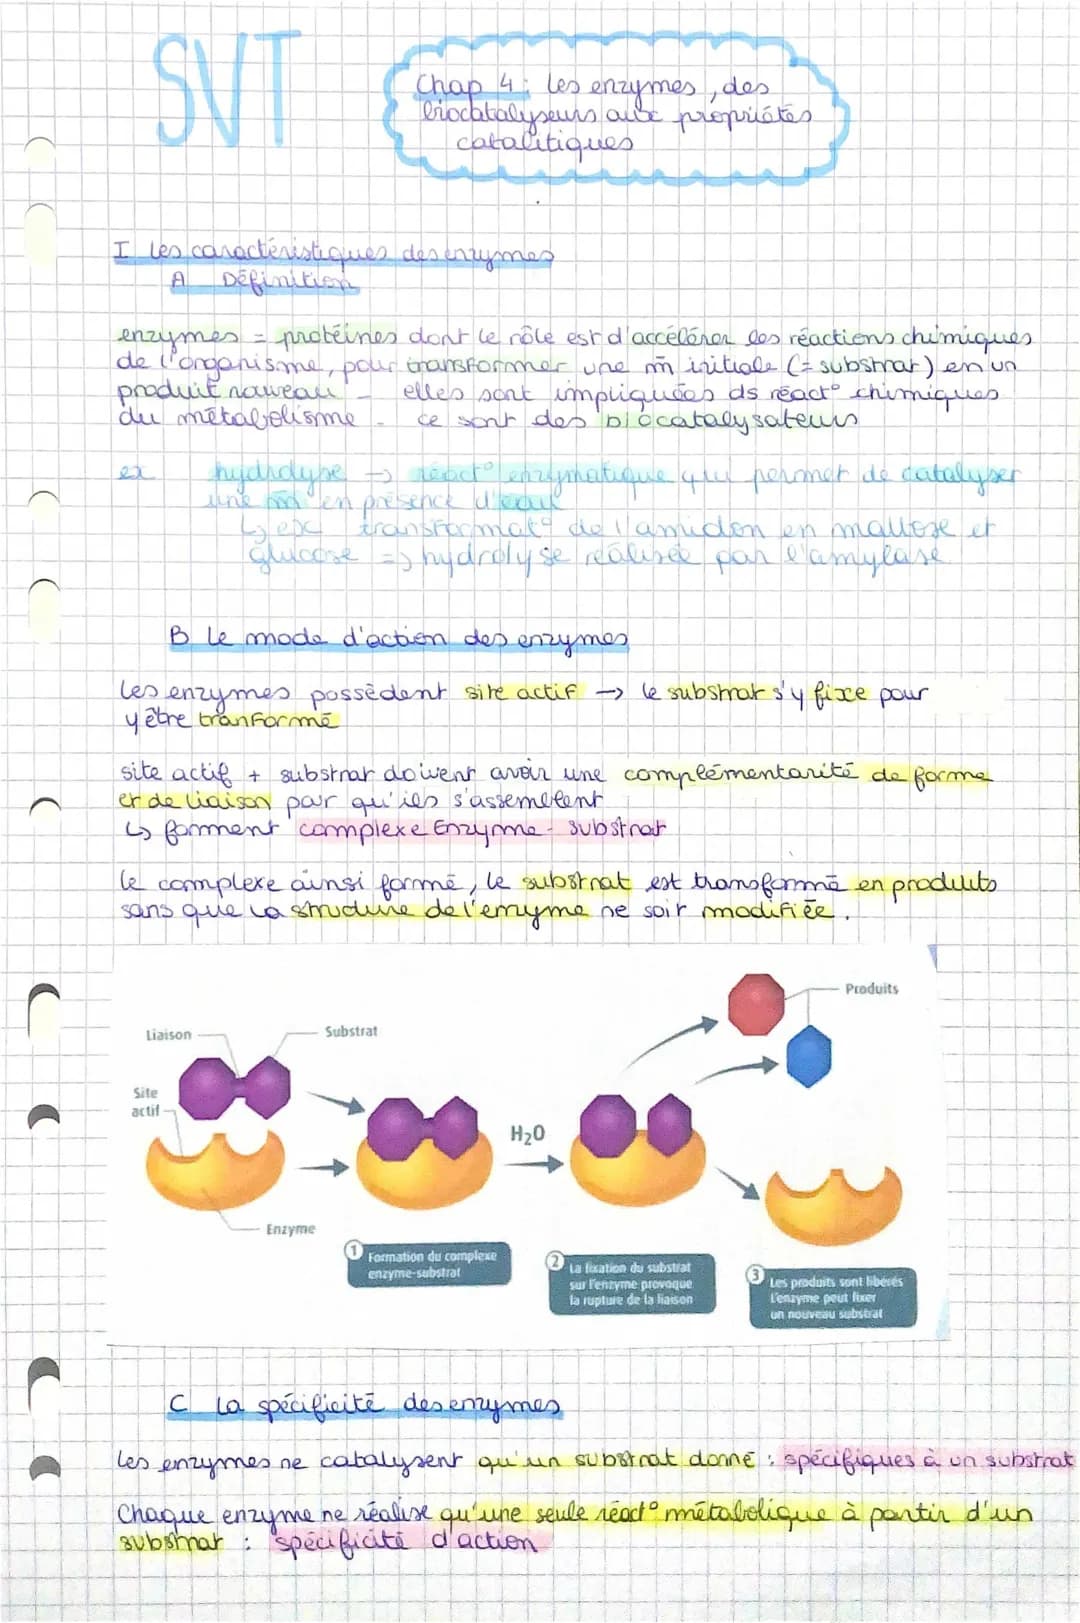 SVT
Chap 4 : les enzymes, des
biocatalyseurs aux propriétés
catalitiques
I les caractéristiques des enzymes
A Définition
enzymes = protéines dont le rôle est d'accélérer les réactions chimiques
de l'organisme, pour transformer une m̄ initiale (= substrat) en un
produit nouveau - elles sont impliquées ds réact° chimiques
du métabolisme - ce sont des biocatalysateurs
ex hydrolyse → réact° enzymatique qui permet de catalyser
une m̄ en présence d'eau
↳ ex transformat° de l'amidon en maltose et
glucose => hydrolyse réalisée par l'amylase
B le mode d'action des enzymes
les enzymes possèdent site actif → le substrat s'y fixe pour
y être tranformé
site actif + substrat doivent avoir une complémentarité de forme
et de liaison pour qu'ils s'assemblent
↳ forment complexe Enzyme - substrat
le complexe ainsi formé, le substrat est transformé en produits
sans que la structure de l'enzyme ne soit modifiée.
Produits
Liaison
Substrat
Site
actif
H₂O
Enzyme
1 Formation du complexe
enzyme-substrat
2 La fixation du substrat
sur l'enzyme provoque
la rupture de la liaison
3 Les produits sont libérés
L'enzyme peut fixer
un nouveau substrat
C La spécificité des enzymes
les enzymes ne catalysent qu'un substrat donné : spécifiques à un substrat
Chaque enzyme ne réalise qu'une seule réact° métabolique à partir d'un
substrat : spécificité d'action